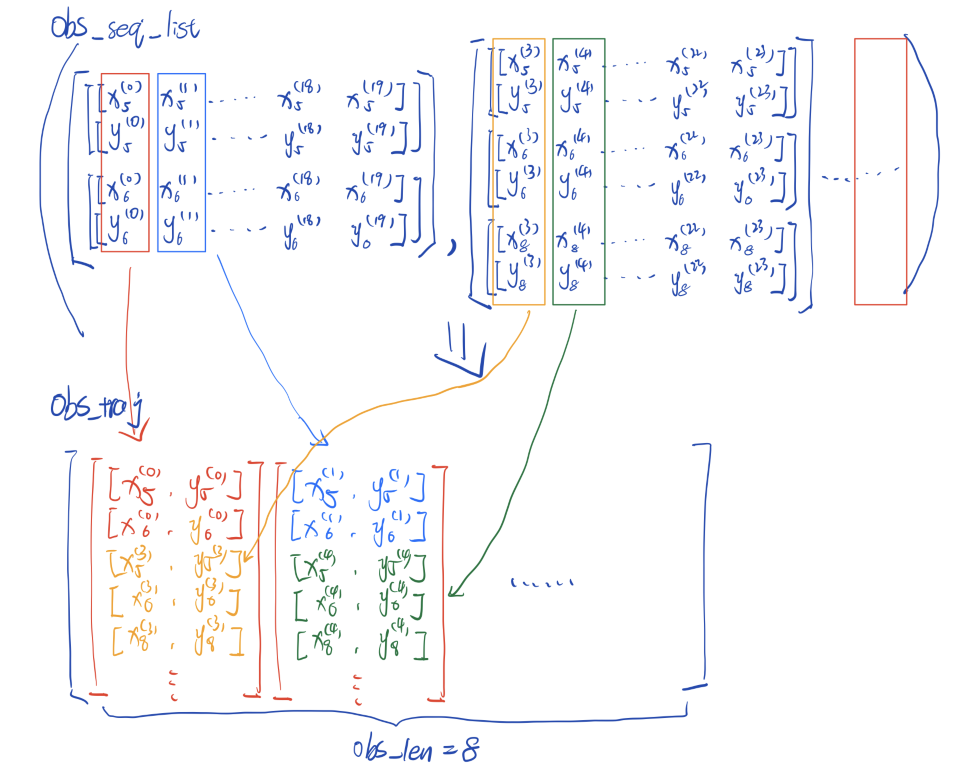 obs_seq_list
[[[x₅⁽⁰⁾ x₅⁽¹⁾ ...... x₅⁽¹⁸⁾ x₅⁽¹⁹⁾]
[y₅⁽⁰⁾ y₅⁽¹⁾ ...... y₅⁽¹⁸⁾ y₅⁽¹⁹⁾]]
[[x₆⁽⁰⁾ x₆⁽¹⁾ ...... x₆⁽¹⁸⁾ x₆⁽¹⁹⁾]
[y₆⁽⁰⁾ y₆⁽¹⁾ ...... y₆⁽¹⁸⁾ y₀⁽¹⁹⁾]]],
[[[x₅⁽³⁾ x₅⁽⁴⁾ ...... x₅⁽²²⁾ x₅⁽²³⁾]
[y₅⁽³⁾ y₅⁽⁴⁾ ...... y₅⁽²²⁾ y₅⁽²³⁾]]
[[x₆⁽³⁾ x₆⁽⁴⁾ ...... x₆⁽²²⁾ x₆⁽²³⁾]
[y₆⁽³⁾ y₆⁽⁴⁾ ...... y₆⁽²²⁾ y₀⁽²³⁾]]
[[x₈⁽³⁾ x₈⁽⁴⁾ ...... x₈⁽²²⁾ x₈⁽²³⁾]
[y₈⁽³⁾ y₈⁽⁴⁾ ...... y₈⁽²²⁾ y₈⁽²³⁾]]] ......
obs_traj
[x₅⁽⁰⁾, y₅⁽⁰⁾] [x₅⁽¹⁾, y₅⁽¹⁾]
[x₆⁽⁰⁾, y₆⁽⁰⁾] [x₆⁽¹⁾, y₆⁽¹⁾]
[x₅⁽³⁾, y₅⁽³⁾] [x₅⁽⁴⁾, y₅⁽⁴⁾] ......
[x₆⁽³⁾, y₆⁽³⁾] [x₆⁽⁴⁾, y₆⁽⁴⁾]
[x₈⁽³⁾, y₈⁽³⁾] [x₈⁽⁴⁾, y₈⁽⁴⁾]
⋮ ⋮
obs_len = 8